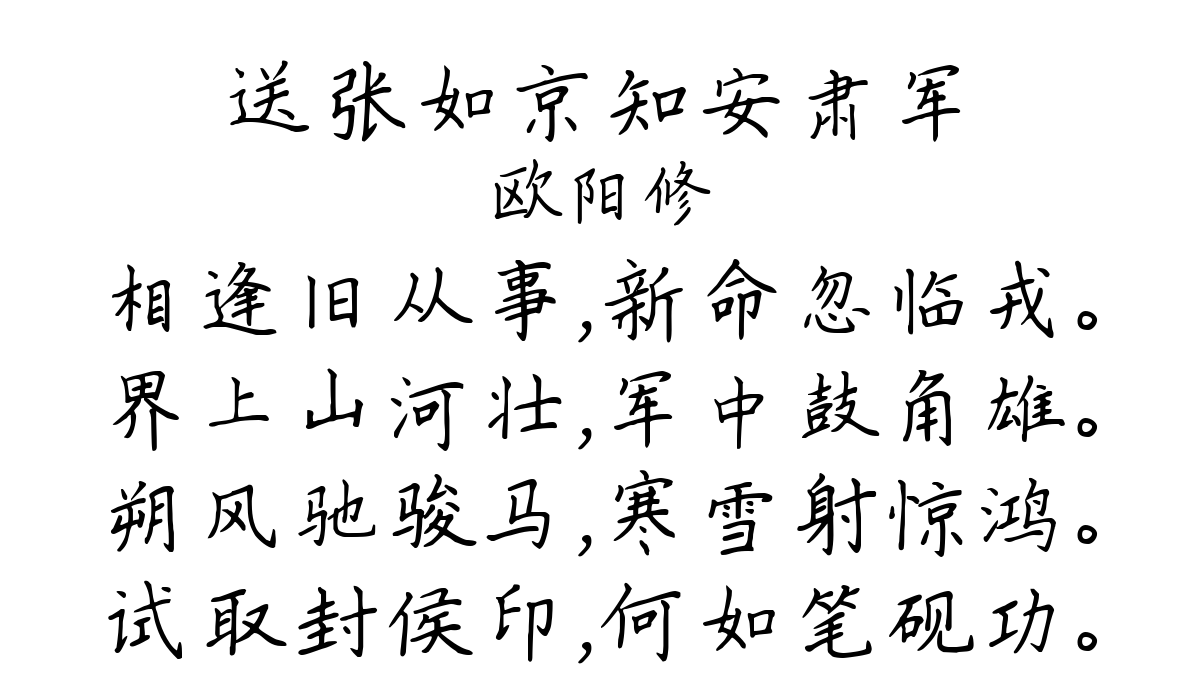 送张如京知安肃军
欧阳修
相逢旧从事,新命忽临戎。
界上山河壮,军中鼓角雄。
朔风驰骏马,寒雪射惊鸿。
试取封侯印,何如笔砚功。